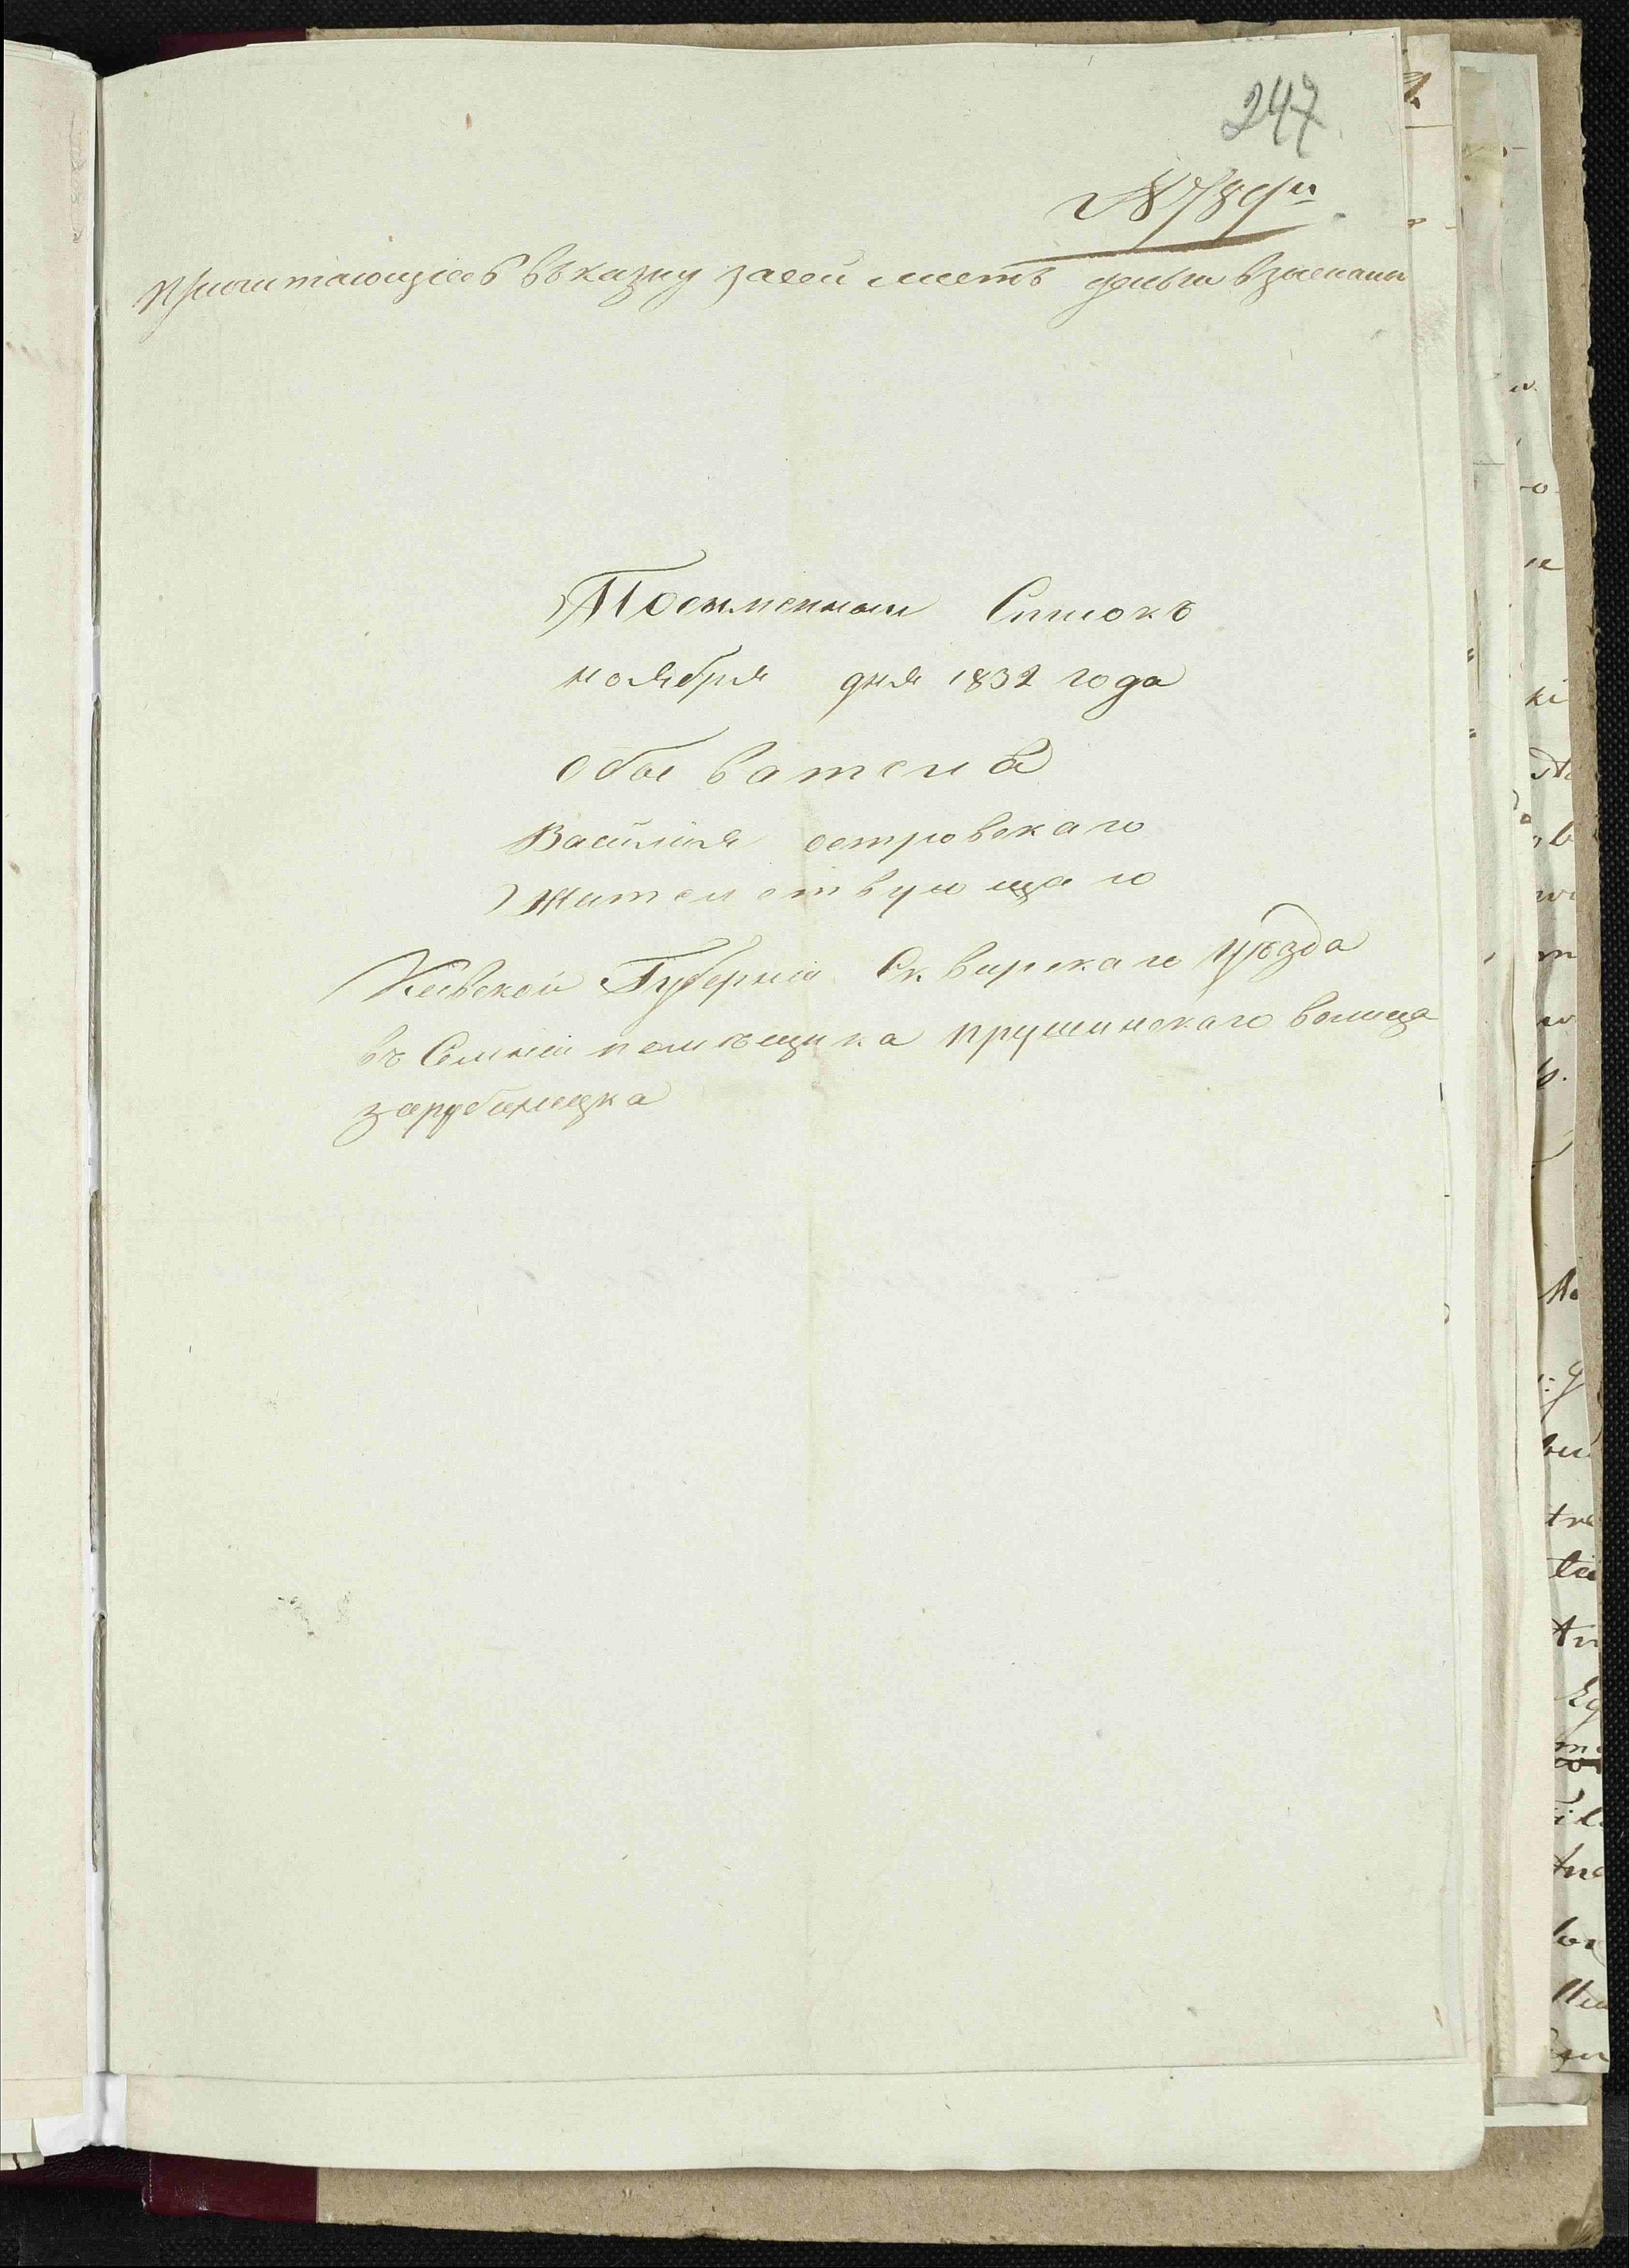 247
№ 789й
причитающіесь въ казну засей листъ деньги взысканы
Поименный Списокъ
ноября дня 1832 года
обывателя
Василія островскаго
Жительствующаго
Кіевской Губерніи Сквирскаго уѣзда
въ Селеніи помѣщика прушинскаго волица
зарубинецка